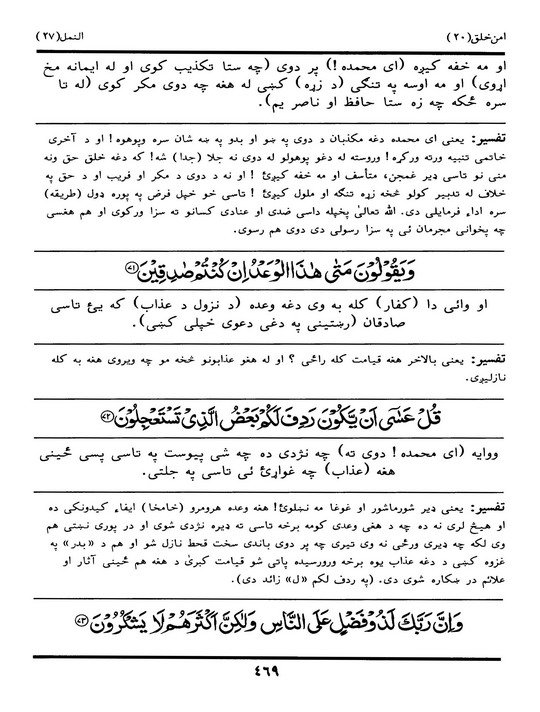 امن خلق(۲۰) النمل(۲۷)
او مه خفه کیږه (ای محمده!) پر دوی (چه ستا تکذیب کوی او له ایمانه مخ
اړوی) او مه اوسه په تنگی (د زړه) کښی له هغه چه دوی مکر کوی (له تا
سره ځکه چه زه ستا حافظ او ناصر یم).
تفسیر: یعنی ای محمده دغه مکذبان د دوی په ښو او بدو په ښه شان سره وپوهوه! او د آخری
خاتمی تنبیه ورته ورکړه! وروسته له دغو پوهولو له دوی نه جلا (جدا) شه! که دغه خلق حق ونه
منی نو تاسی ډیر غمجن، متأسف او مه خفه کیږئ! او نه د دوی د مکر او فریب او د حق په
خلاف له تدبیر کولو څخه زړه تنگه او ملول کیږئ! تاسی خو خپل فرض په پوره ډول (طریقه)
سره اداء فرمایلی دی. الله تعالیٰ پخپله داسی ضدی او عنادی کسانو ته سزا ورکوی او هم هغسی
چه پخوانی مجرمان ئی په سزا رسولی دی دوی هم رسوی.
وَيَقُوْلُوْنَ مَتٰى هٰذَا الْوَعْدُ اِنْ كُنْتُمْ صٰدِقِيْنَ ﴿۷۱﴾
او وائی دا (کفار) کله به وی دغه وعده (د نزول د عذاب) که یئ تاسی
صادقان (رښتینی په دغی دعوی خپلی کښی).
تفسیر: یعنی بالاخر هغه قیامت کله راځی؟ او له هغو عذابونو څخه مو چه ویروی هغه به کله
نازلیږی.
قُلْ عَسٰٓى اَنْ يَّكُوْنَ رَدِفَ لَكُمْ بَعْضُ الَّذِىْ تَسْتَعْجِلُوْنَ ﴿۷۲﴾
ووایه (ای محمده! دوی ته) چه نژدی ده چه شی پیوست په تاسی پسی ځینی
هغه (عذاب) چه غواړئ ئی تاسی په جلتی.
تفسیر: یعنی ډیر شورماشور او غوغا مه نښلوئ! هغه وعده هرومرو (خامخا) ایفاء کیدونکی ده
او هیڅ لری نه ده چه د هغی وعدی کومه برخه تاسی ته ډیره نژدی شوی او در پوری نښتی هم
وی لکه چه ډیری ورځی نه وی تیری چه پر دوی باندی سخت قحط نازل شو او هم د «بدر» په
غزوه کښی د دغه عذاب یوه برخه ورورسیده پاتی شو قیامت کبریٰ د هغه هم ځینی آثار او
علائم در ښکاره شوی دی. (په ردف لکم «ل» زائد دی).
وَاِنَّ رَبَّكَ لَذُوْ فَضْلٍ عَلَى النَّاسِ وَلٰكِنَّ اَكْثَرَهُمْ لَا يَشْكُرُوْنَ ﴿۷۳﴾
٤٦٩